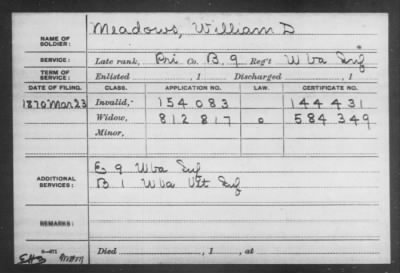 NAME OF SOLDIER: Meadows, William D
SERVICE: Late rank, Pri Co. B. 9 Reg't W Va Inf
TERM OF SERVICE: Enlisted , 1 Discharged , 1
DATE OF FILING. CLASS. APPLICATION NO. LAW. CERTIFICATE NO.
1870 Mar 23 Invalid, 154 083 144 431
Widow, 812 817 o 584 349
Minor,
ADDITIONAL SERVICES: E 9 W Va Inf
B 1 W Va Vet Inf
REMARKS:
Died , 1 , at